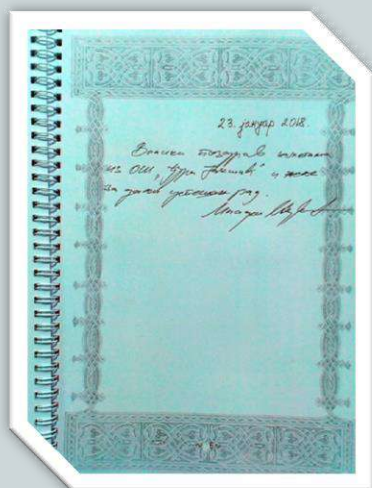 23. јануар 2018.
Велики поздрав
из ОШ „Ђура Јакшић“ и
за даљи успешан рад.